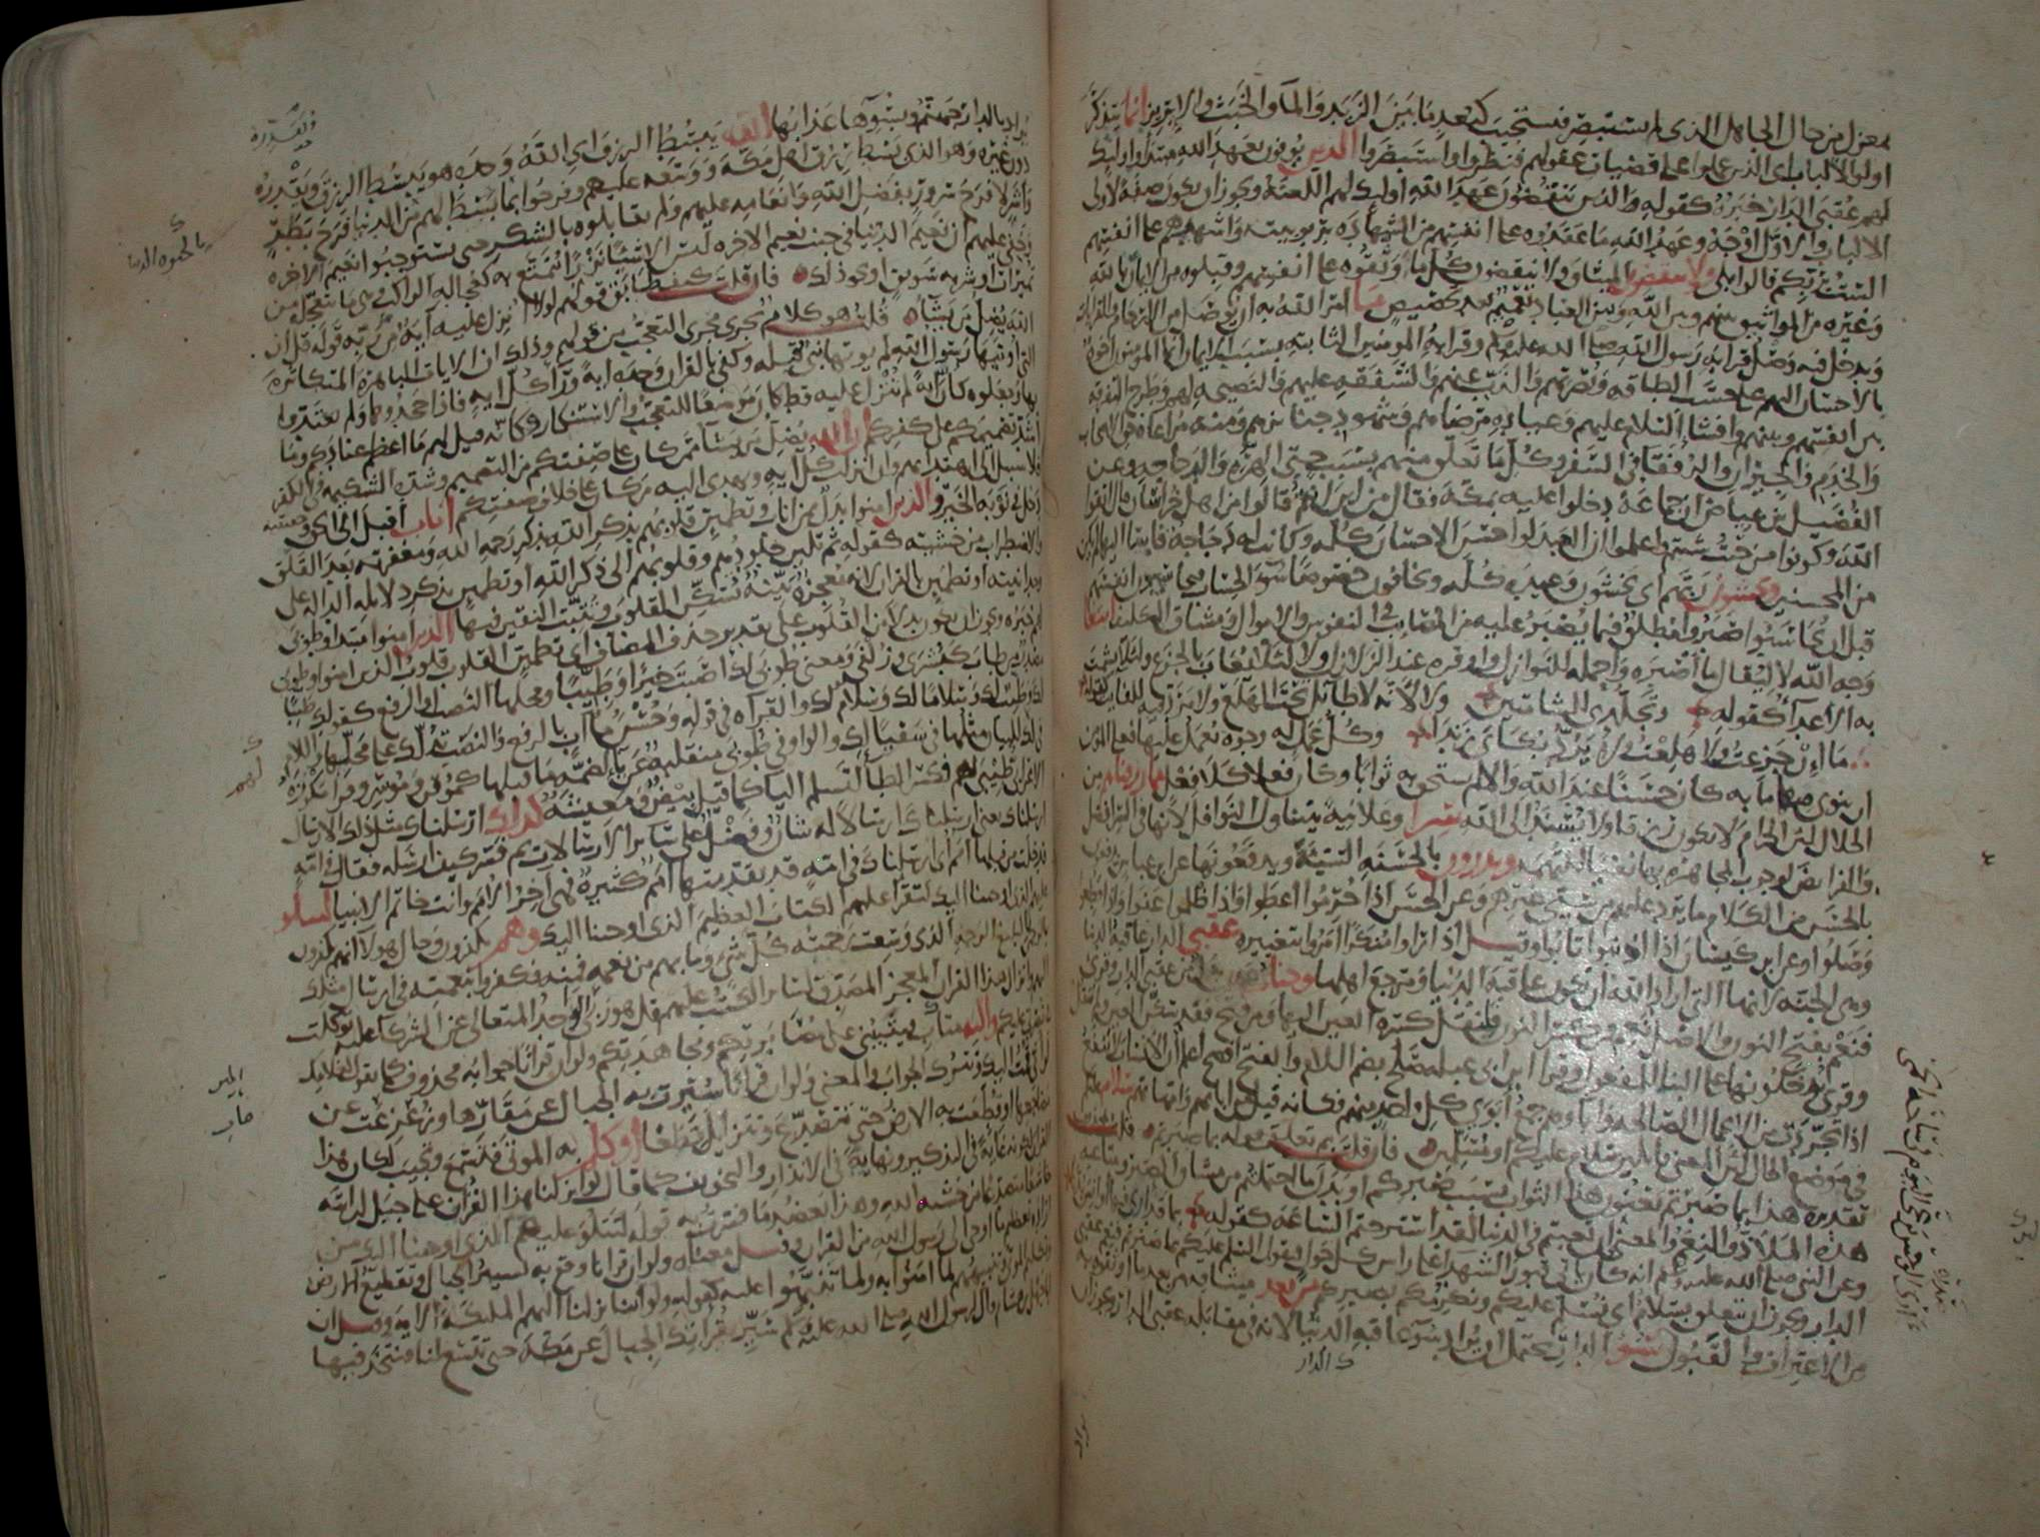 بمعزل من حال الجاهل الذى لم يستبصر فيستجيب كبعد ما بين الزبد والماء والخبث والابريز انما يتذكر
اولوا الالباب اى الذين عملوا على قضيات عقولهم فنظروا واستبصروا الذين يوفون بعهد الله مبتدا واولئك
لهم عقبى الدار خبره كقوله والذين ينقضون عهد الله اولئك لهم اللعنة ويجوز ان يكون صفة لاولى
الالباب والاول اوجه وعهد الله ما عقدوه على انفسهم من الشهادة بربوبيته واشهدهم على انفسهم
الست بربكم قالوا بلى ولا ينقضون الميثاق ولا ينقضون كل ما وثقوه على انفسهم وقبلوه من الايمان بالله
وغيره من المواثيق بينهم وبين الله وبين العباد تعميم بعد تخصيص ما امر الله به ان يوصل من الارحام والقرابات
ويدخل فيه وصل قرابة رسول الله صلى الله عليه وسلم وقرابة المومنين الثابتة بسبب الايمان انما المومنون اخوة
بالاحسان اليهم على حسب الطاقة ونصرتهم والذب عنهم والشفقة عليهم والنصيحة لهم وطرح التفرقة
بين انفسهم وبينهم وافشاء السلام عليهم وعيادة مرضاهم وشهود جنائزهم ومنه مراعاة حق الاصحاب
والخدم والجيران والرفقاء فى السفر وكل ما تعلق منهم بسبب حتى الهرة والدجاجة وعن
الفضيل بن عياض ان جماعة دخلوا عليه بمكة فقال من اين انتم قالوا من اهل خراسان قال اتقوا
الله وكونوا من حيث شئتم واعلموا ان العبد لو احسن الاحسان كله وكانت له دجاجة فاساء اليها لم يكن
من المحسنين ويخشون ربهم اى يخشون وعيده كله ويخافون خصوصا سوء الحساب فيحاسبون انفسهم
قبل ان يحاسبوا صبروا مطلق فيما يصبر عليه من المصائب فى النفوس والاموال ومشاق التكليف ابتغاء
وجه الله لا ليقال ما اصبره واحمله للنوازل واوقره عند الزلازل ولا لئلا يعاب بالجزع ولئلا يشمت
به الاعداء كقوله وتجلدى للشامتين ولا لانه لا طائل تحت الهلع ولا مرد فيه للفائت كقوله
ما ان جزعت ولا هلعت ولا يرد بكاى زندا وكل عمل له وجوه يعمل عليها فعلى المومن
ان ينوى منها ما به كان حسنا عند الله والا لم يستحق به ثوابا وكان فعلا كلا فعل مما رزقناهم من
الحلال لان الحرام لا يكون رزقا ولا يسند الى الله سرا وعلانية يتناول النوافل لانها فى السر افضل
والفرائض لوجوب المجاهرة بها نفيا للتهمة ويدرءون بالحسنة السيئة ويدفعونها عن ابن عباس يدفعون
بالحسن من الكلام ما يرد عليهم من سيئ غيرهم وعن الحسن اذا حرموا اعطوا واذا ظلموا عفوا واذا قطعوا
وصلوا وعن ابن كيسان اذا اذنبوا تابوا وقيل اذا راوا منكرا امروا بتغييره عقبى الدار عاقبة الدنيا
وهى الجنة لانها التى اراد الله ان تكون عاقبة الدنيا ومرجع اهلها وجنات عدن بدل من عقبى الدار وقرئ
فنعم بفتح النون والاصل نعم ومن كسر النون فلنقل كسرة العين اليها ومن فتح فقد سكن العين ولم ينقل
وقرئ يدخلونها على البناء للمفعول وقرا ابن ابى عبلة صلح بضم اللام والفتح افصح اعلم ان الانساب لا تنفع
اذا تجردت من الاعمال الصالحة واباوهم جمع ابوى كل واحد منهم فكانه قيل من ابائهم وامهاتهم سلام عليكم
فى موضع الحال لان المعنى قائلين سلام عليكم او مسلمين فان قلت بم تعلق قوله بما صبرتم قلت بمحذوف
تقديره هذا بما صبرتم يعنون هذا الثواب بسبب صبركم او بدل ما احتملتم من مشاق الصبر ومتاعبه
هذه الملاذ والنعم والمعنى لئن تعبتم فى الدنيا لقد استرحتم الساعة كقوله بما قد ارى فيها اوانس بدنا
وعن النبى صلى الله عليه وسلم انه كان ياتى قبور الشهداء على راس كل حول فيقول السلام عليكم بما صبرتم فنعم عقبى
الدار ويجوز ان يتعلق بسلام اى نسلم عليكم ونكرمكم بصبركم من بعد ميثاقه من بعد ما اوثقوه به
من الاعتراف والقبول سوء الدار يحتمل ان يراد سوء عاقبة الدنيا لانه فى مقابلة عقبى الدار ويجوز ان
ك الدار
يراد بالدار جهنم وبسوها عذابها الله يبسط الرزق اى الله وحده هو يبسط الرزق ويقدره
دون غيره وهو الذى بسط رزق اهل مكة ووسعه عليهم وفرحوا بما بسط لهم من الدنيا فرح بطر
واشر لا فرح سرور بفضل الله وانعامه عليهم ولم يقابلوه بالشكر حتى يستوجبوا نعيم الاخرة
وخفى عليهم ان نعيم الدنيا فى جنب نعيم الاخرة ليس الا شيئا نزرا يتمتع به كعجالة الراكب وهى ما يتعجله من
تميرات او شربة سويق او نحو ذلك فان قلت كيف طابق قولهم لولا انزل عليه اية من ربه قوله قل ان
الله يضل من يشاء قلت هو كلام يجرى مجرى التعجب من قولهم وذلك ان الايات الباهرة المتكاثرة
التى اوتيها رسول الله لم يوتها نبى قبله وكفى بالقران وحده اية وراء كل اية فاذا جحدوها ولم يعتدوا
بها وجعلوه كان اية لم تنزل عليه قط كان موضعا للتعجب والاستنكار وكانه قيل لهم ما اعظم عنادكم وما
اشد تصميمكم على كفركم ان الله يضل من يشاء ممن كان على صفتكم من التصميم وشدة الشكيمة فى الكفر
فلا سبيل الى اهتدائهم وان انزلت كل اية ويهدى اليه من كان على خلاف صفتكم اناب اقبل الى الحق وحقيقته
دخل فى نوبة الخير والذين امنوا بدل من اناب وتطمئن قلوبهم بذكر الله بذكر رحمة الله ومغفرته بعد القلق
والاضطراب من خشيته كقوله ثم تلين جلودهم وقلوبهم الى ذكر الله او تطمئن بذكر دلائله الدالة على
وحدانيته او تطمئن بالقران لانه معجزة بينة تسكن القلوب وتثبت اليقين فيها الذين امنوا مبتدا وطوبى
لهم خبره ويجوز ان يكون بدلا من القلوب على تقدير حذف المضاف اى تطمئن القلوب قلوب الذين امنوا وطوبى
مصدر من طاب كبشرى وزلفى ومعنى طوبى لك اصبت خيرا وطيبا ومحلها النصب او الرفع كقولك طيبا
لك وطيب لك وسلاما لك وسلام لك والقراءة فى قوله وحسن مآب بالرفع والنصب تدلك على محلها واللام
فى لهم للبيان مثلها فى سقيا لك والواو فى طوبى منقلبة عن ياء لضمة ما قبلها كموقن وموسر وقرا مكوزة
الاعرابى طيبى لهم فكسر الطاء لتسلم الياء كما قيل بيض ومعيشة كذلك ارسلناك مثل ذلك الارسال
ارسلناك يعنى ارسلناك ارسالا له شان وفضل على سائر الارسالات ثم فسر كيف ارسله فقال فى امة
قد خلت من قبلها امم اى ارسلناك فى امة قد تقدمتها امم كثيرة فهى اخر الامم وانت خاتم الانبياء لتتلو
عليهم الذى اوحينا اليك لتقرا عليهم الكتاب العظيم الذى اوحينا اليك وهم يكفرون وحال هولاء انهم يكفرون
بالرحمن بالبليغ الرحمة الذى وسعت رحمته كل شئ وما بهم من نعمة فمنه فكفروا بنعمته فى ارسال مثلك
اليهم وانزال هذا القران المعجز المصدق لسائر الكتب عليهم قل هو ربى الواحد المتعالى عن الشركاء عليه توكلت
فى نصرتى عليكم واليه متاب فيثيبنى على مصابرتكم ومجاهدتكم ولو ان قرانا جوابه محذوف كما تقول لغلامك
لو انى قمت اليك وتترك الجواب والمعنى ولو ان قرانا سيرت به الجبال عن مقارها وزعزعت عن
مضاجعها او قطعت به الارض حتى تتصدع وتتزايل قطعا او كلم به الموتى فتسمع وتجيب لكان هذا
القران لكونه غاية فى التذكير ونهاية فى الانذار والتخويف كما قال لو انزلنا هذا القران على جبل لرايته
خاشعا متصدعا من خشية الله وهذا يعضد ما فسرت به قوله لتتلو عليهم الذى اوحينا اليك من
ارادة تعظيم ما اوحى الى رسول الله من القران وقيل معناه ولو ان قرانا وقع به تسيير الجبال وتقطيع الارض
وتكليم الموتى وتنبيههم لما امنوا به ولما تنبهوا عليه كقوله ولو اننا نزلنا اليهم الملئكة الاية وقيل ان
ابا جهل بن هشام قال لرسول الله صلى الله عليه وسلم سير بقرانك الجبال عن مكة حتى تتسع لنا فنتخذ فيها
ويقدره
بالحيوة الدنيا
لهم